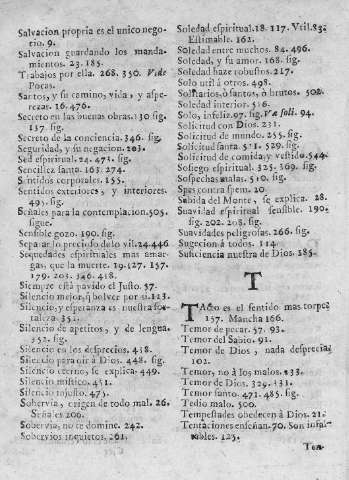 Salvacion propria es el unico nego-
rio. 9.
Salvacion guardando los manda-
mientos. 23. 185.
Trabajos por ella. 268. 350. Vide
Pocas.
Santos, y su camino, vida, y aspe-
rezas. 16. 476.
Secreto en las buenas obras. 130 sig.
137. sig.
Secreto de la conciencia. 346. sig.
Seguridad, y su negacion. 203.
Sed espiritual. 24. 473. sig.
Sencillez santa. 163. 274.
Sentidos corporales. 155.
Sentidos exteriores, y interiores.
495. sig.
Señales para la contemplacion. 505.
sigue.
Sensible gozo. 190. sig.
Separar lo precioso de lo vil. 24. 446
Sequedades espirituales mas amar-
gas, que la muerte. 19. 127. 157.
179. 203. 346. 418.
Siempre està pavido el Justo. 57.
Silencio mejor, q̃ bolver por sì. 123.
Silencio, y esperanza es nuestra for-
taleza. 351.
Silencio de apetitos, y de lengua.
352. sig.
Silencio en los desprecios. 418.
Silencio para oìr à Dios. 448. sig.
Silencio eterno, le explica. 449.
Silencio mistico. 451.
Silencio injusto. 475.
Sobervia, origen de todo mal. 26.
Señales 206.
Sobervia, no te domine. 242.
Sobervios inquietos. 261.
Soledad espiritual. 18. 117. Vtil. 83.
Estimable. 162.
Soledad entre muchos. 84. 496.
Soledad, y su amor. 168. sig.
Soledad haze robustos. 217.
Solo util à otros. 498.
Solitarios, ò santos, ò brutos. 502.
Soledad interior. 516.
Solo, infeliz. 97. sig. Væ soli. 94.
Solicitud con Dios. 231.
Solicitud de mundo. 255. sig.
Solicitud santa. 511. 529. sig.
Solicitud de comida, y vestido. 544.
Sosiego espiritual. 325. 369. sig.
Sospechas malas. 510. sig.
Spes contra spem. 20.
Subida del Monte, se explica. 28.
Suavidad espiritual sensible. 190.
sig. 202. 208. sig.
Suavidades peligrosas. 266. sig.
Sugecion à todos. 114
Suficiencia nuestra de Dios. 385.
T
TActo es el sentido mas torpe.
157. Mancha 166.
Temor de pecar. 57. 93.
Temor del Sabio. 91.
Temor de Dios, nada desprecia
102.
Temor, no à los malos. 133.
Temor de Dios. 329. 331.
Temor santo. 471. 485. sig.
Tedio malo. 500.
Tempestades obedecen à Dios. 21.
Tentaciones enseñan. 70. Son infal-
ibles. 125.
Ten-